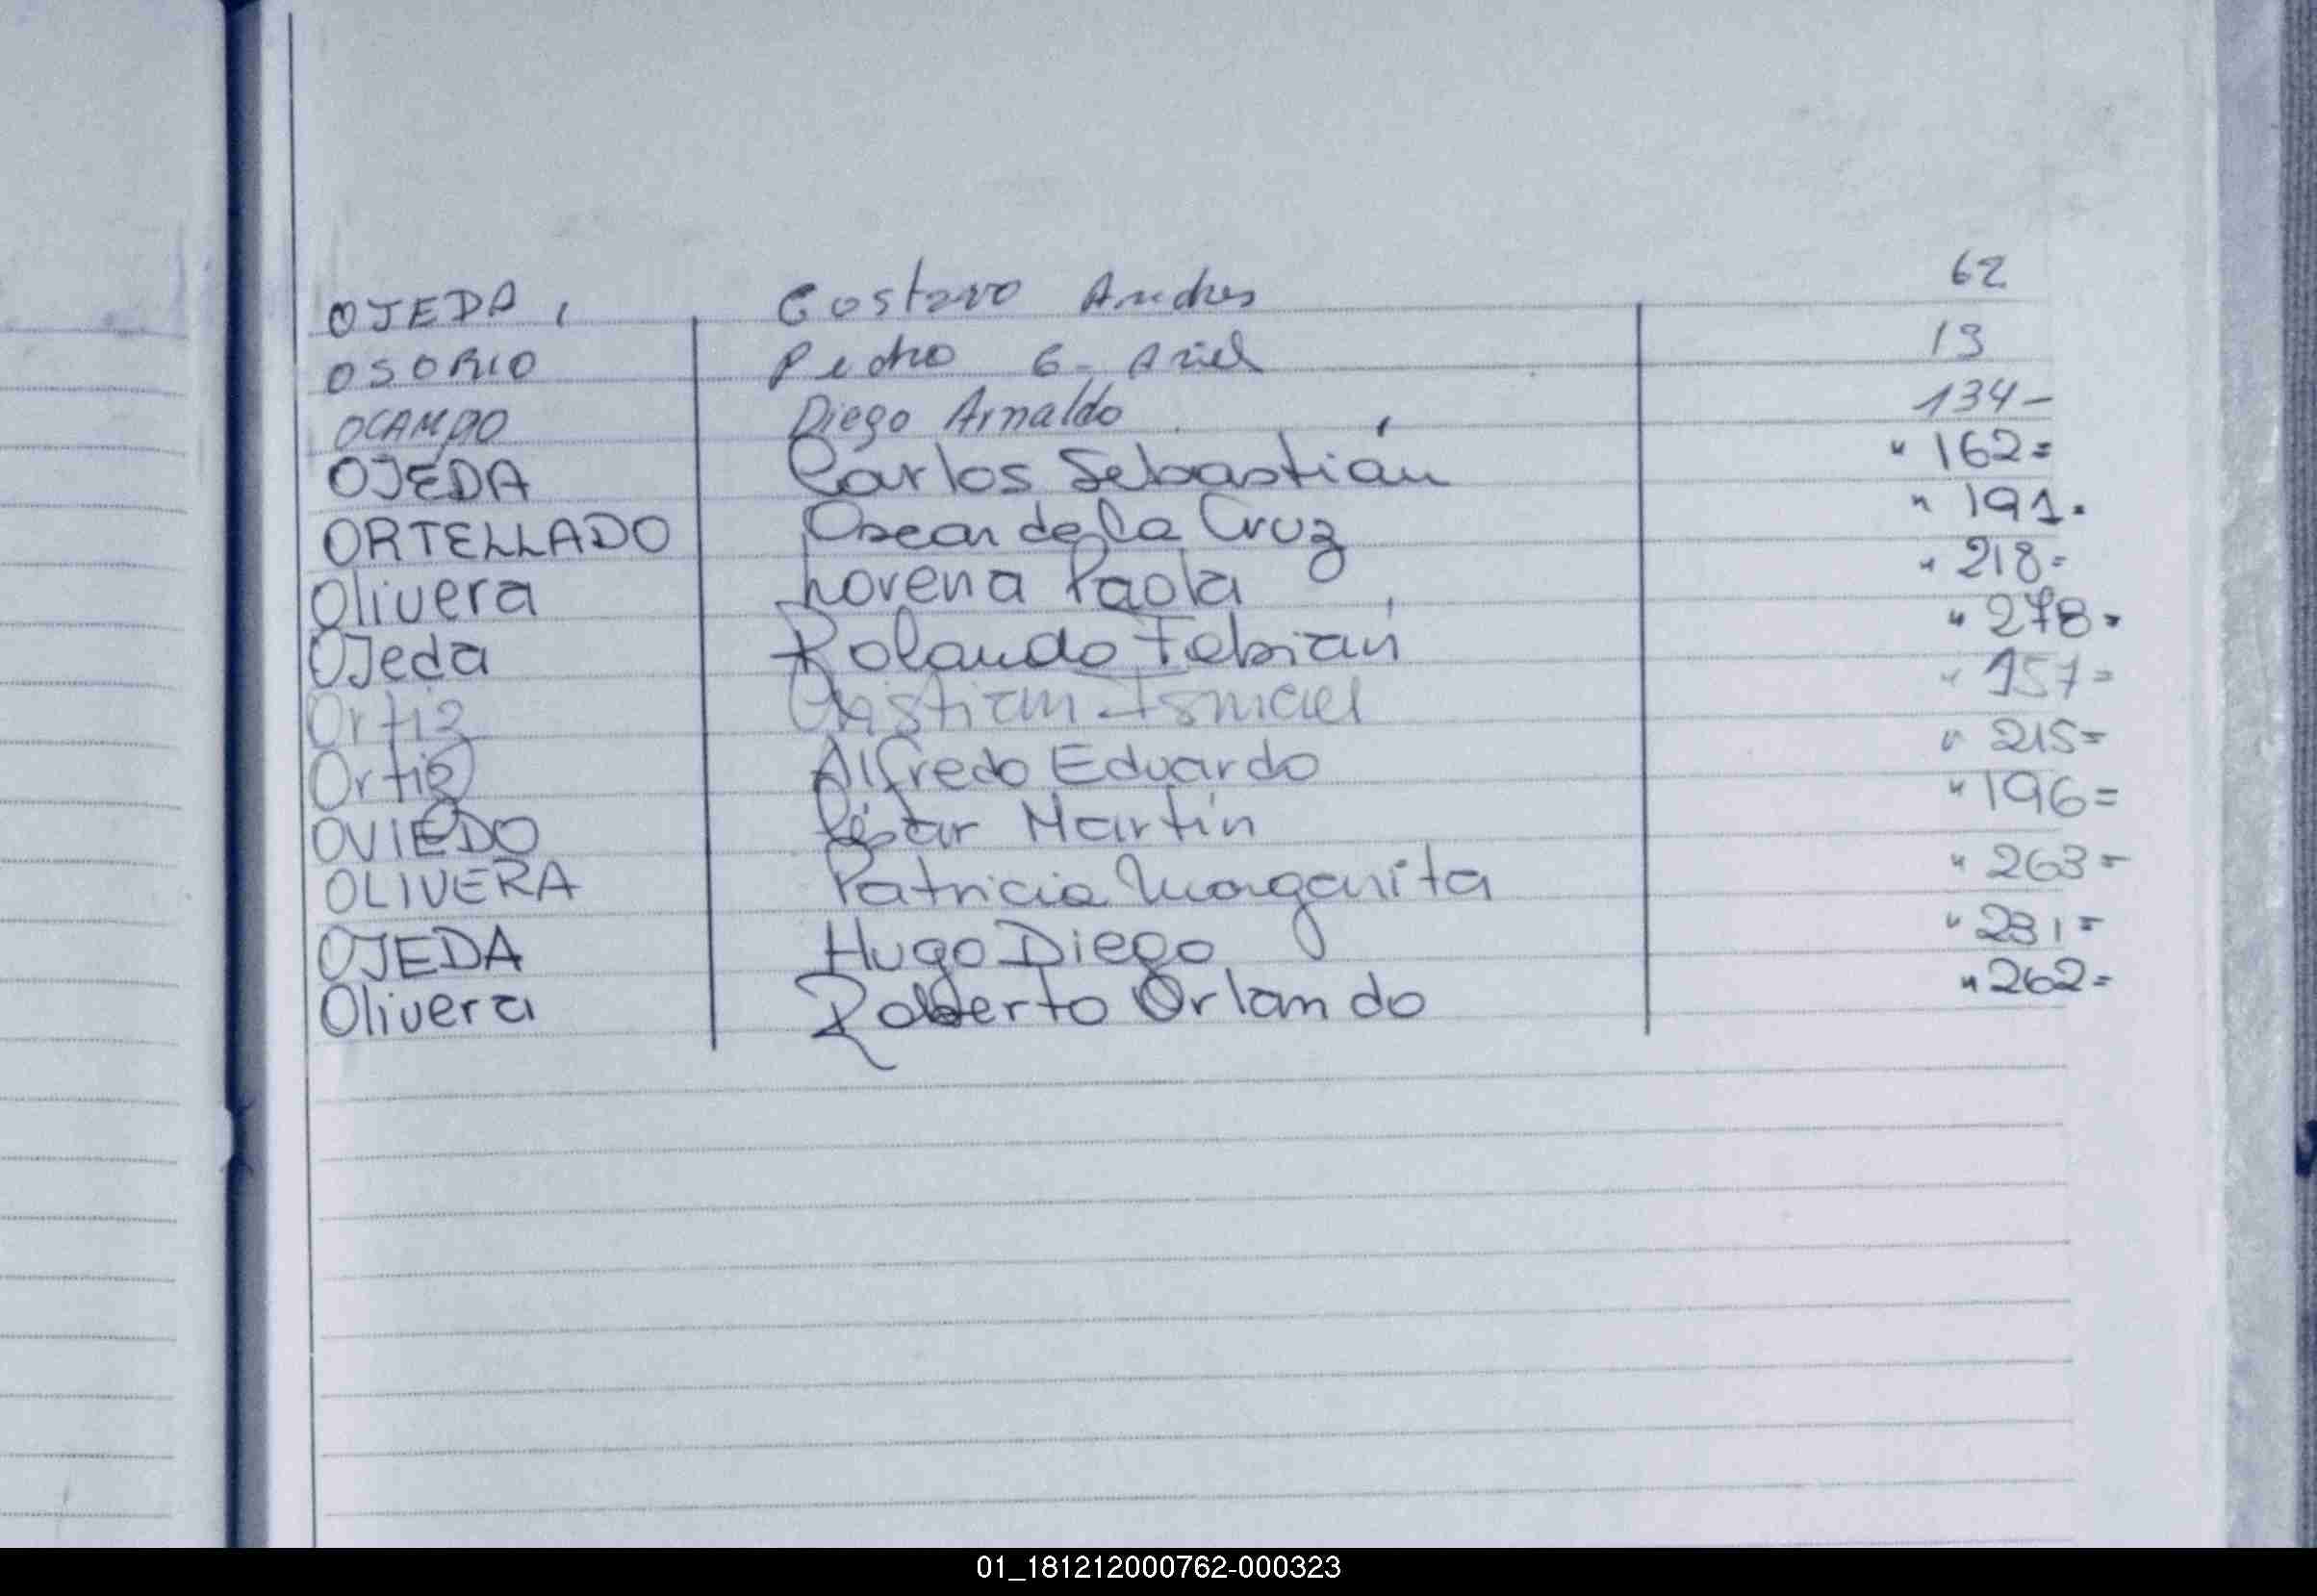 OJEDA, Gustavo Andres 62
OSORIO Pedro G. Ariel 13
OCAMPO Diego Arnaldo 134-
OJEDA Carlos Sebastián " 162=
ORTELLADO Oscar de la Cruz " 191.
Olivera Lorena Paola " 218=
OJeda Rolando Fabián " 278=
Ortiz Cristian Ismael " 157=
Ortiz Alfredo Eduardo " 215=
OVIEDO César Martín " 196=
OLIVERA Patricia Margarita " 263=
OJEDA Hugo Diego " 231=
Olivera Roberto Orlando " 262=
01_181212000762-000323